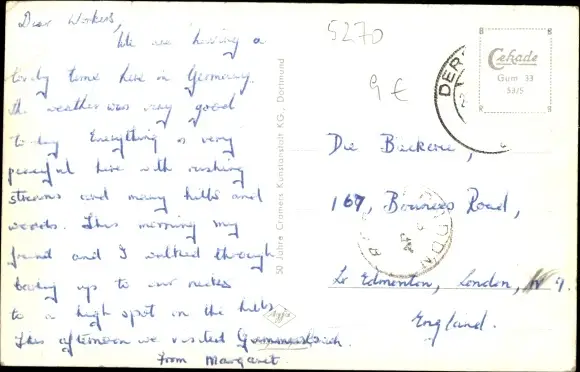 Dear Workers,
We are having a
lovely time here in Germany.
The weather was very good
to-day. Everything is very
peaceful here with rushing
streams and many hills and
woods. This morning my
friend and I walked through
up to our necks
to a high spot in the hills
This afternoon we visited
From Margaret.
5270
9 €
50 Jahre Cramers Kunstanstalt KG., Dortmund
Agfa
DER
Cekade
Gum 33
53/5
Die Bäckerei,
167, Bounces Road,
Lr Edmonton, London, N 9.
England.